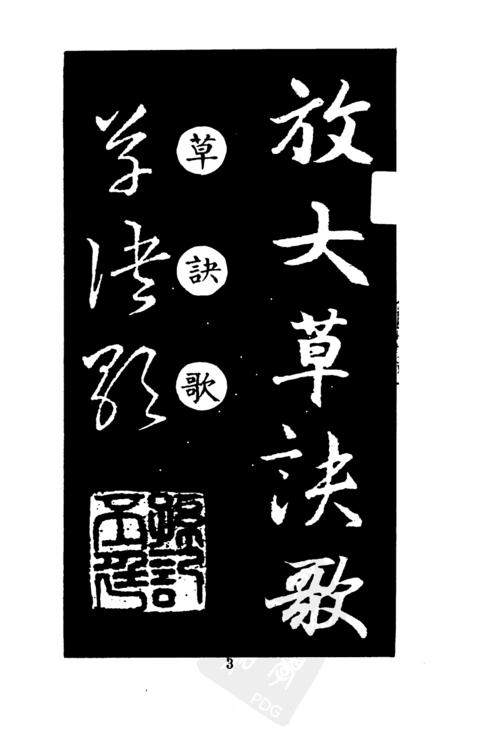 放大草訣歌
草訣歌
草訣歌
3
PDG